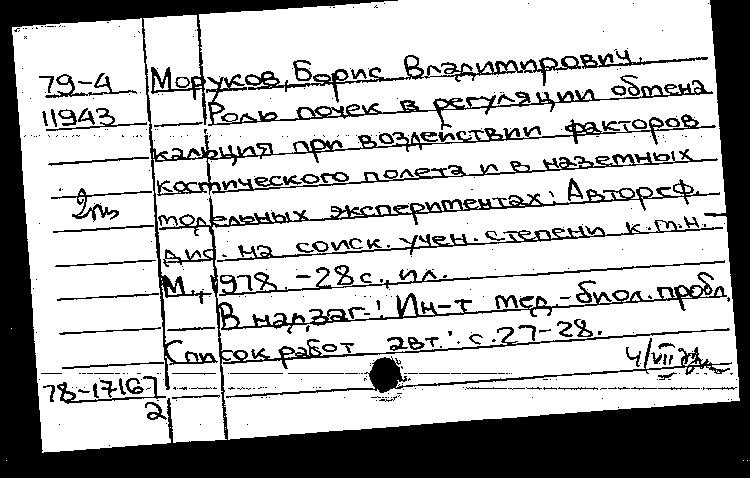 79-4 Моруков, Борис Владимирович.
11943 Роль почек в регуляции обмена
кальция при воздействии факторов
космического полета и в наземных
модельных экспериментах: Автореф.
дис. на соиск. учен. степени к.м.н. –
М., 1978. – 28 с., ил.
В надзаг.: Ин-т мед.-биол. пробл.
Список работ авт.: с. 27-28.
4/VII
78-17167
2